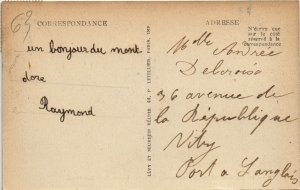 63
CORRESPONDANCE
un bonjour du mont
dore
Raymond
LÉVY ET NEURDEIN RÉUNIS
IMP.
ADRESSE
N'écrire que
sur le côté
réservé à la
Correspondance
Mlle Andrée
36 avenue de
la République
Vitry
Port à Langlais